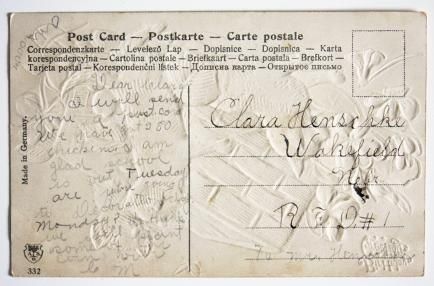 Post Card — Postkarte — Carte postale
Correspondenzkarte — Levelező Lap — Dopisnice — Dopisnica — Karta
korespondencyjna — Cartolina postale — Briefkaart — Carta postala — Brefkort —
Tarjeta postal — Korespondenční lístek — Дописна карта — Открытое письмо
Dear
I will send
you a post card
We have got 250
chickens I am
glad school
is out Tuesday
are you going
to
Monday? I think
we will
some
corn
Made in Germany.
332
Clara Henschke
Wakefield
Nebr.
R F D #1